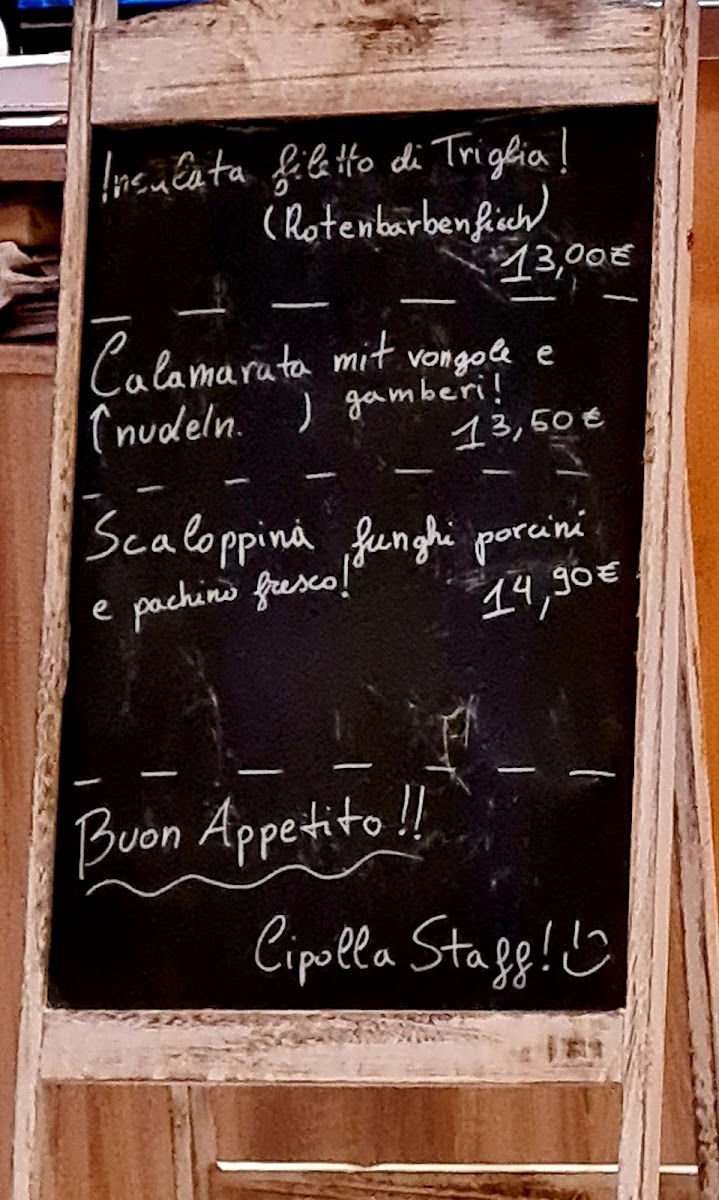 Insalata filetto di Triglia!
(Rotenbarbenfisch)
13,00€
Calamarata mit vongole e
(nudeln. ) gamberi!
13,50€
Scaloppina funghi porcini
e pachino fresco!
14,90€
Buon Appetito!!
Cipolla Staff!